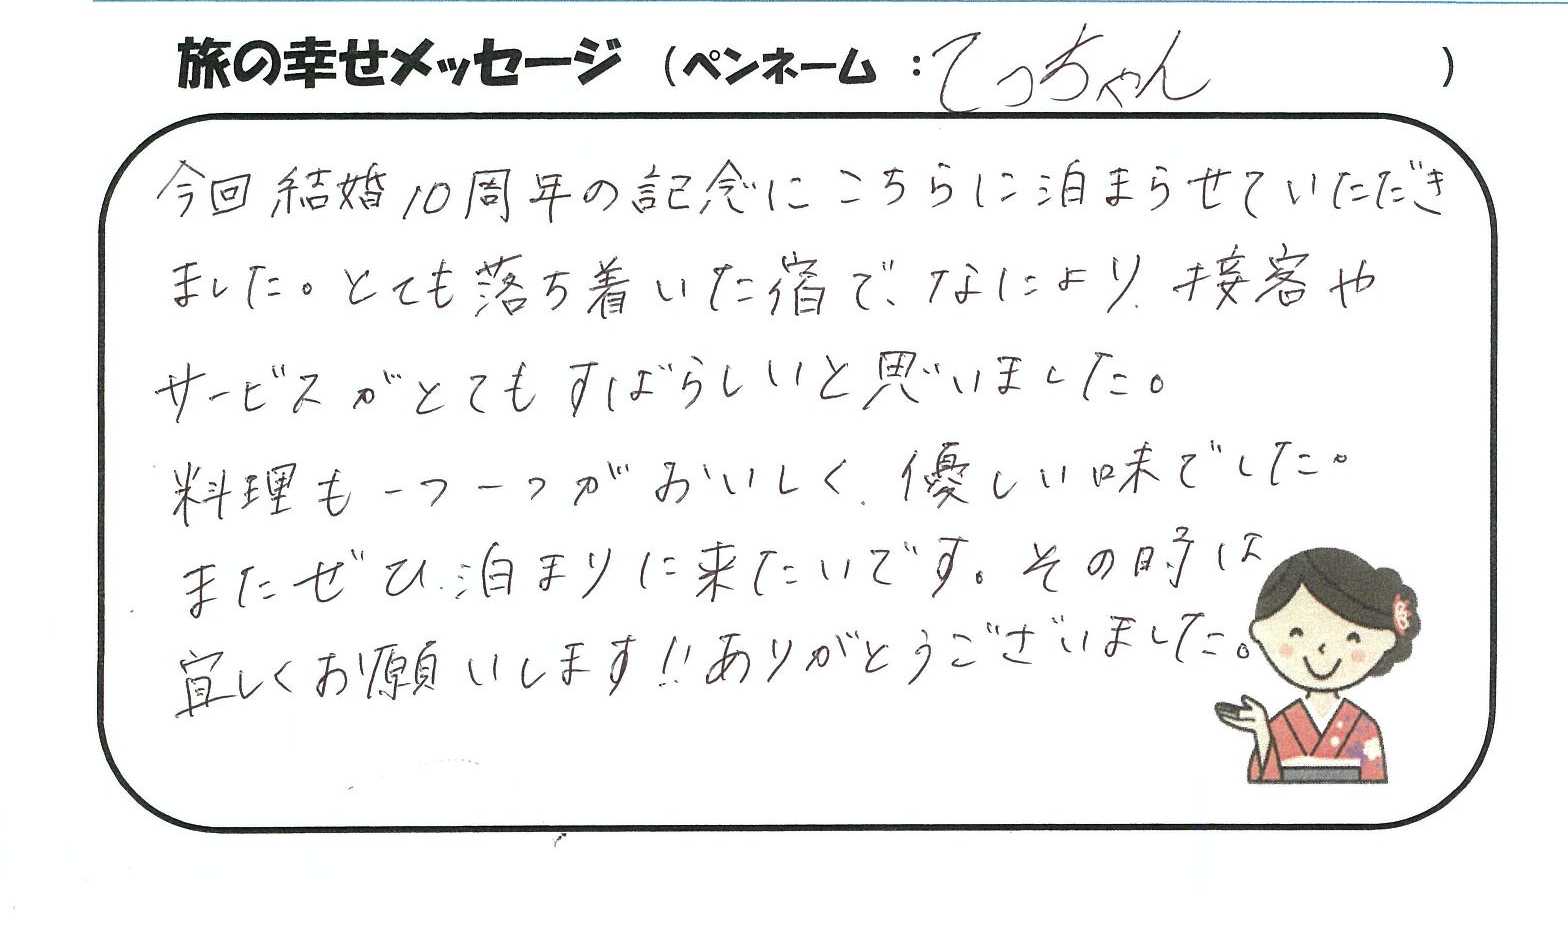 旅の幸せメッセージ (ペンネーム:てっちゃん )
今回結婚10周年の記念にこちらに泊まらせていただき
ました。とても落ち着いた宿で、なにより、接客や
サービスがとてもすばらしいと思いました。
料理も一つ一つがおいしく、優しい味でした。
またぜひ泊まりに来たいです。その時は
宜しくお願いします!!ありがとうございました。